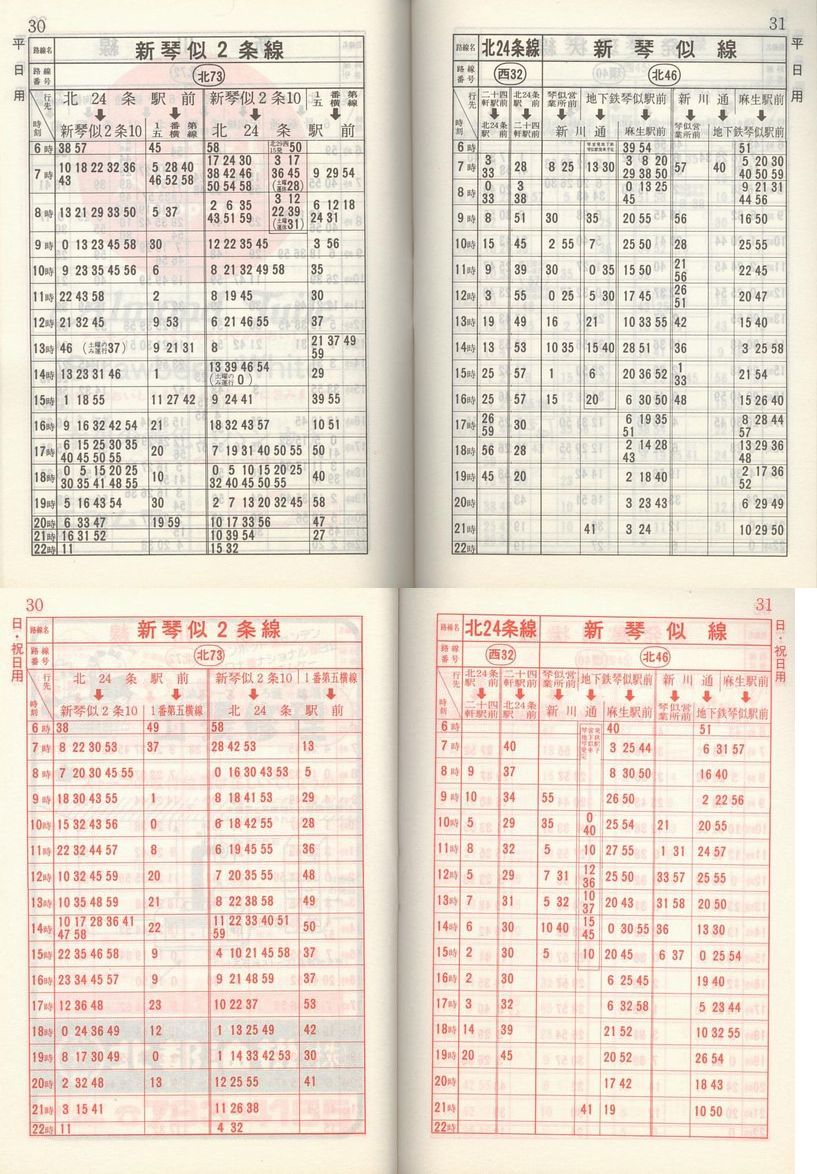 30
平日用
路線名 新琴似2条線
路線番号 北73
行先 時刻
北24条駅前 新琴似2条10 1番第五横線
新琴似2条10 1番第五横線 北24条駅前
6時 38 57 45 58 50
7時 10 18 22 32 36 43 5 28 40 46 52 58 17 24 30 38 42 46 50 54 58 3 17 36 45 (土曜運休28) 9 29 54
8時 13 21 29 33 50 5 37 2 6 35 43 51 59 3 12 22 39 (土曜運休31) 6 12 18 24 31
9時 0 13 23 45 58 30 12 22 35 45 3 56
10時 9 23 35 45 56 6 8 21 32 49 58 35
11時 22 43 58 2 8 19 45 30
12時 21 32 45 9 53 6 21 46 55 37
13時 46 (土曜のみ運行37) 9 21 31 8 21 37 49 59
14時 13 23 31 46 1 13 39 46 54 (土曜のみ運行0) 29
15時 1 18 55 11 27 42 9 24 41 39 55
16時 9 16 32 42 54 21 18 32 43 57 10 51
17時 6 15 25 30 35 40 45 50 55 20 7 19 31 40 50 55 50
18時 0 5 15 20 25 30 35 41 48 55 10 0 5 10 15 20 25 32 40 45 50 55 40
19時 5 16 43 54 30 2 7 13 20 32 45 58
20時 6 33 47 19 59 10 17 33 56 47
21時 16 31 52 10 39 54 27
22時 11 15 32
31
平日用
路線名 北24条線 新琴似線
路線番号 西32 北46
行先 時刻
二十四軒駅前 北24条駅前 琴似営業所前 地下鉄琴似駅前 新川通 麻生駅前
北24条駅前 二十四軒駅前 新川通 麻生駅前 琴似営業所前 地下鉄琴似駅前
6時 39 54 51
7時 3 33 28 8 25 13 30 3 8 20 29 38 50 57 40 5 20 30 40 50 59
8時 0 33 3 38 0 13 25 45 9 21 31 44 56
9時 8 51 30 35 20 55 56 16 50
10時 15 45 2 55 7 25 50 28 25 55
11時 9 39 30 0 35 15 50 21 56 22 45
12時 3 55 0 25 5 30 17 45 26 51 20 47
13時 19 49 16 21 10 33 55 42 15 40
14時 13 53 10 35 15 40 28 51 36 3 25 58
15時 25 57 1 6 20 36 52 1 33 21 54
16時 25 57 15 20 6 30 50 48 15 26 40
17時 26 59 30 6 19 35 51 8 28 44 57
18時 56 28 2 14 28 43 13 29 36 48
19時 45 20 2 18 40 2 17 36 52
20時 3 23 43 6 29 49
21時 41 3 24 10 29 50
22時
30
日・祝日用
路線名 新琴似2条線
路線番号 北73
行先 時刻
北24条駅前 新琴似2条10 1番第五横線
新琴似2条10 1番第五横線 北24条駅前
6時 38 49 58
7時 8 22 30 53 37 28 42 53 13
8時 7 20 30 45 55 0 16 30 43 53 5
9時 18 30 43 55 1 8 18 41 53 29
10時 15 32 43 56 0 6 18 42 55 28
11時 22 32 44 57 8 6 19 45 55 36
12時 10 32 45 59 20 7 20 35 55 48
13時 10 35 48 59 21 8 22 38 58 49
14時 10 17 28 36 41 47 58 22 11 22 33 40 51 59 50
15時 22 35 46 58 9 4 10 21 45 58 37
16時 23 34 45 57 9 9 21 48 59 37
17時 12 36 48 23 10 22 37 53
18時 0 24 36 49 12 1 13 25 49 42
19時 8 17 30 49 0 1 14 33 42 53 30
20時 2 32 48 13 12 25 55 41
21時 3 15 41 11 26 38
22時 11 4 32
31
日・祝日用
路線名 北24条線 新琴似線
路線番号 西32 北46
行先 時刻
北24条駅前 二十四軒駅前 琴似営業所前 地下鉄琴似駅前 新川通 麻生駅前
二十四軒駅前 北24条駅前 新川通 麻生駅前 琴似営業所前 地下鉄琴似駅前
6時 40 51
7時 40 3 25 44 6 31 57
8時 9 37 8 30 50 16 40
9時 10 34 55 26 50 2 22 56
10時 5 29 35 0 40 25 54 21 20 55
11時 8 32 5 10 27 55 1 31 24 57
12時 5 29 7 31 12 36 25 50 33 57 25 55
13時 7 31 5 32 10 37 20 43 31 58 20 50
14時 6 30 10 40 15 45 0 30 55 36 13 30
15時 2 30 5 10 20 45 6 37 0 25 54
16時 2 30 6 25 45 19 40
17時 3 32 6 32 58 5 23 44
18時 14 39 21 52 10 32 55
19時 20 45 20 52 26 54
20時 17 42 18 43
21時 41 19 10 50
22時